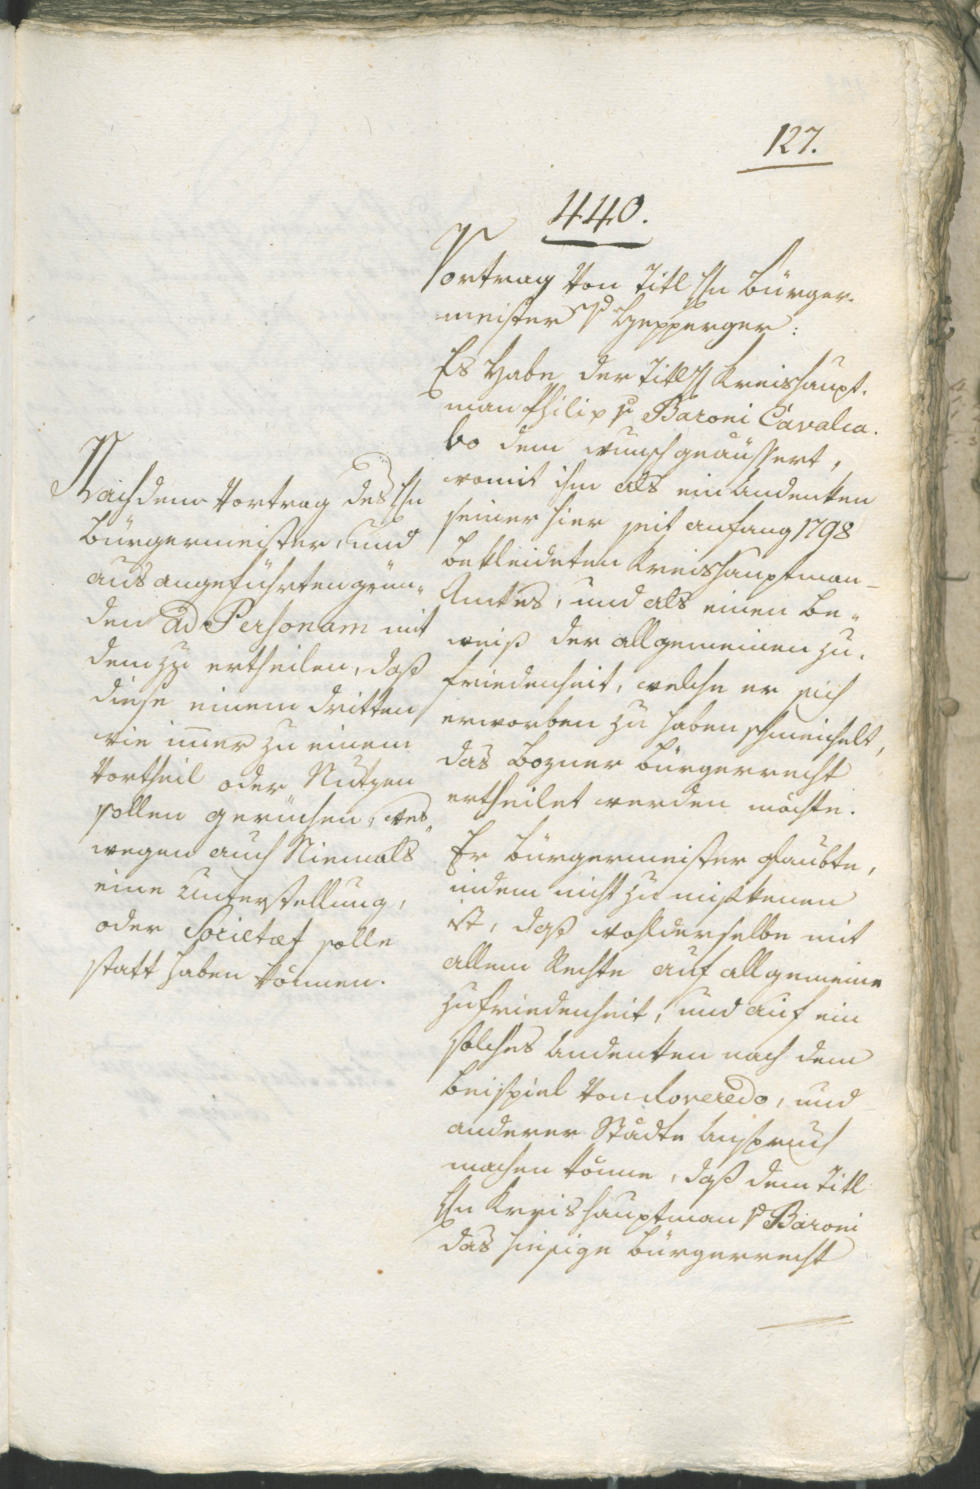 127.
440.
Vortrag von Titl Hn Bürger-
meister v Hepperger:
Es habe der Titl H Kreishaupt-
man Philip v Baroni Cavalca-
bo dem wunsch geäussert,
womit ihm als ein Andenken
seiner hier seit anfang 1798
bekleideten Kreishauptman-
Amtes, und als einen Be-
weiß der allgemeinen zu-
friedenheit, welche er sich
erworben zu haben schmeichelt,
das Bozner Bürgerrecht
ertheilet werden möchte.
Er Bürgermeister glaubte,
indem nicht zu mißkenen
ist, daß wohlderselbe mit
allem Rechte auf allgemeine
zufriedenheit, und auf ein
solches Andenken nach dem
Beispiel von Roveredo, und
anderer Städte Anspruch
machen könne, daß dem Titl
Hn Kreishauptman v Baroni
das hiesige Bürgerrecht
Nach dem Vortrag des Hn
Bürgermeister, und
aus angeführten grün-
den ad Personam mit
dem zu ertheilen, daß
diese einem dritten
wie imer zu einem
Vortheil oder Nutzen
sollen gereichen, wes-
wegen auch Niemals
eine Unterstellung,
oder Societæt solle
statt haben können.